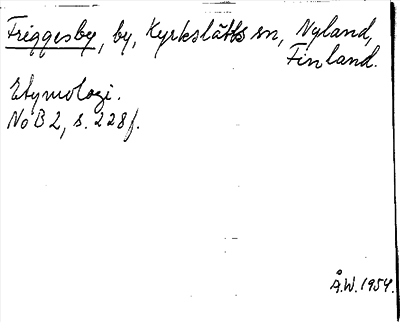 Friggesby, by, Kyrkslätts sn, Nyland,
Finland.
Etymologi.
NoB 2, s. 228f.
Å.W. 1954.